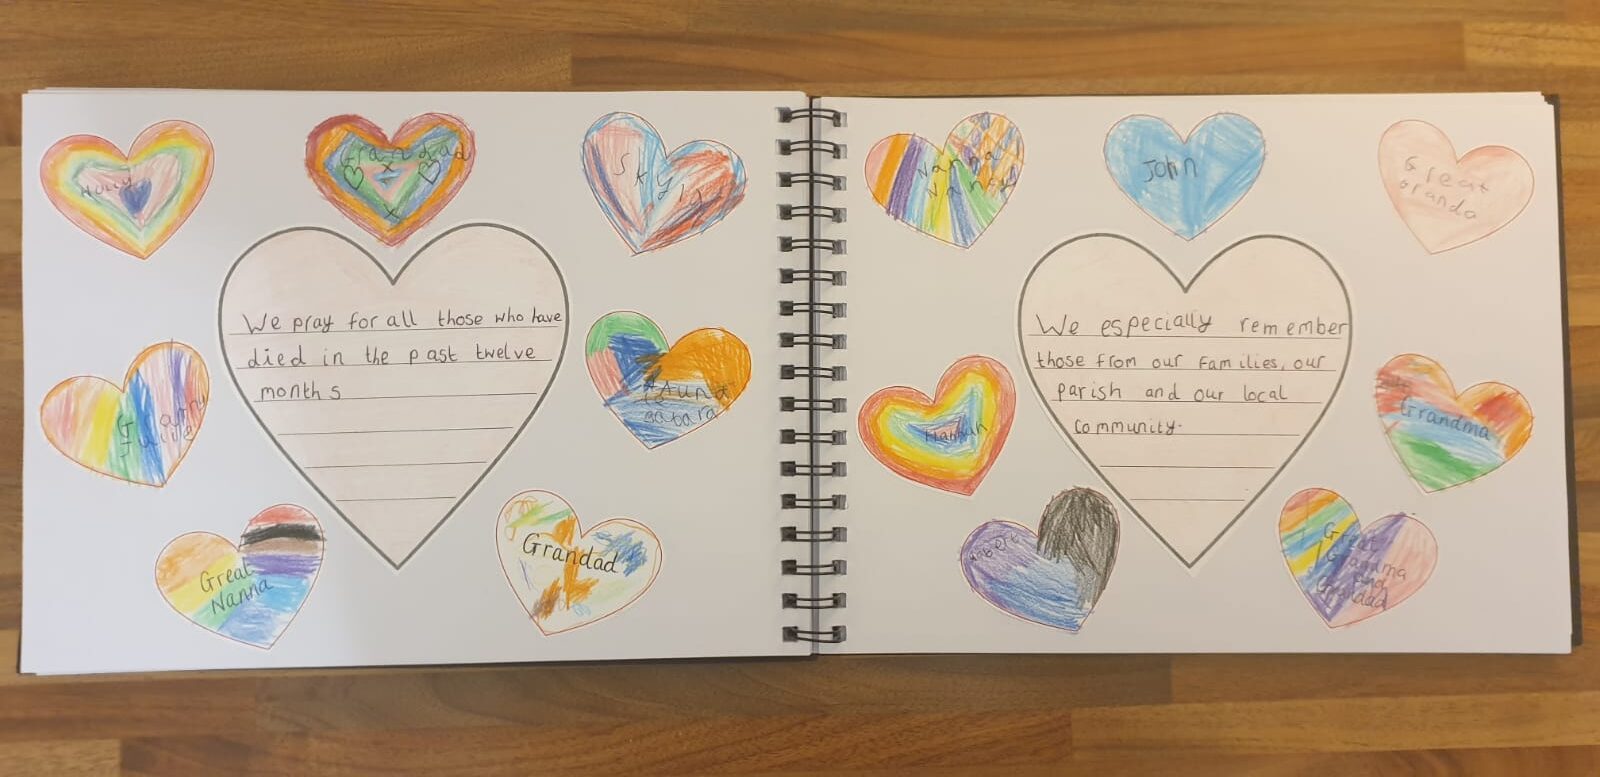 Holly
Grandad
x
x
Sky
We pray for all those who have
died in the past twelve
months
Great
Nanna
Grandad
Nanna
John
Great
Granda
We especially remember
those from our families, our
parish and our local
community.
Hannah
Grandma
Great
Grandma
and
Grandad